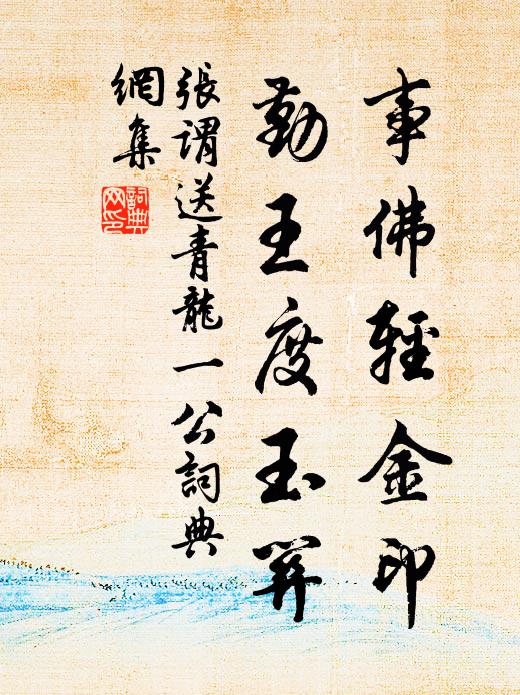 事佛輕金印
勤王度玉關
張謂送青龍一公詞典
網集
詞典
网印